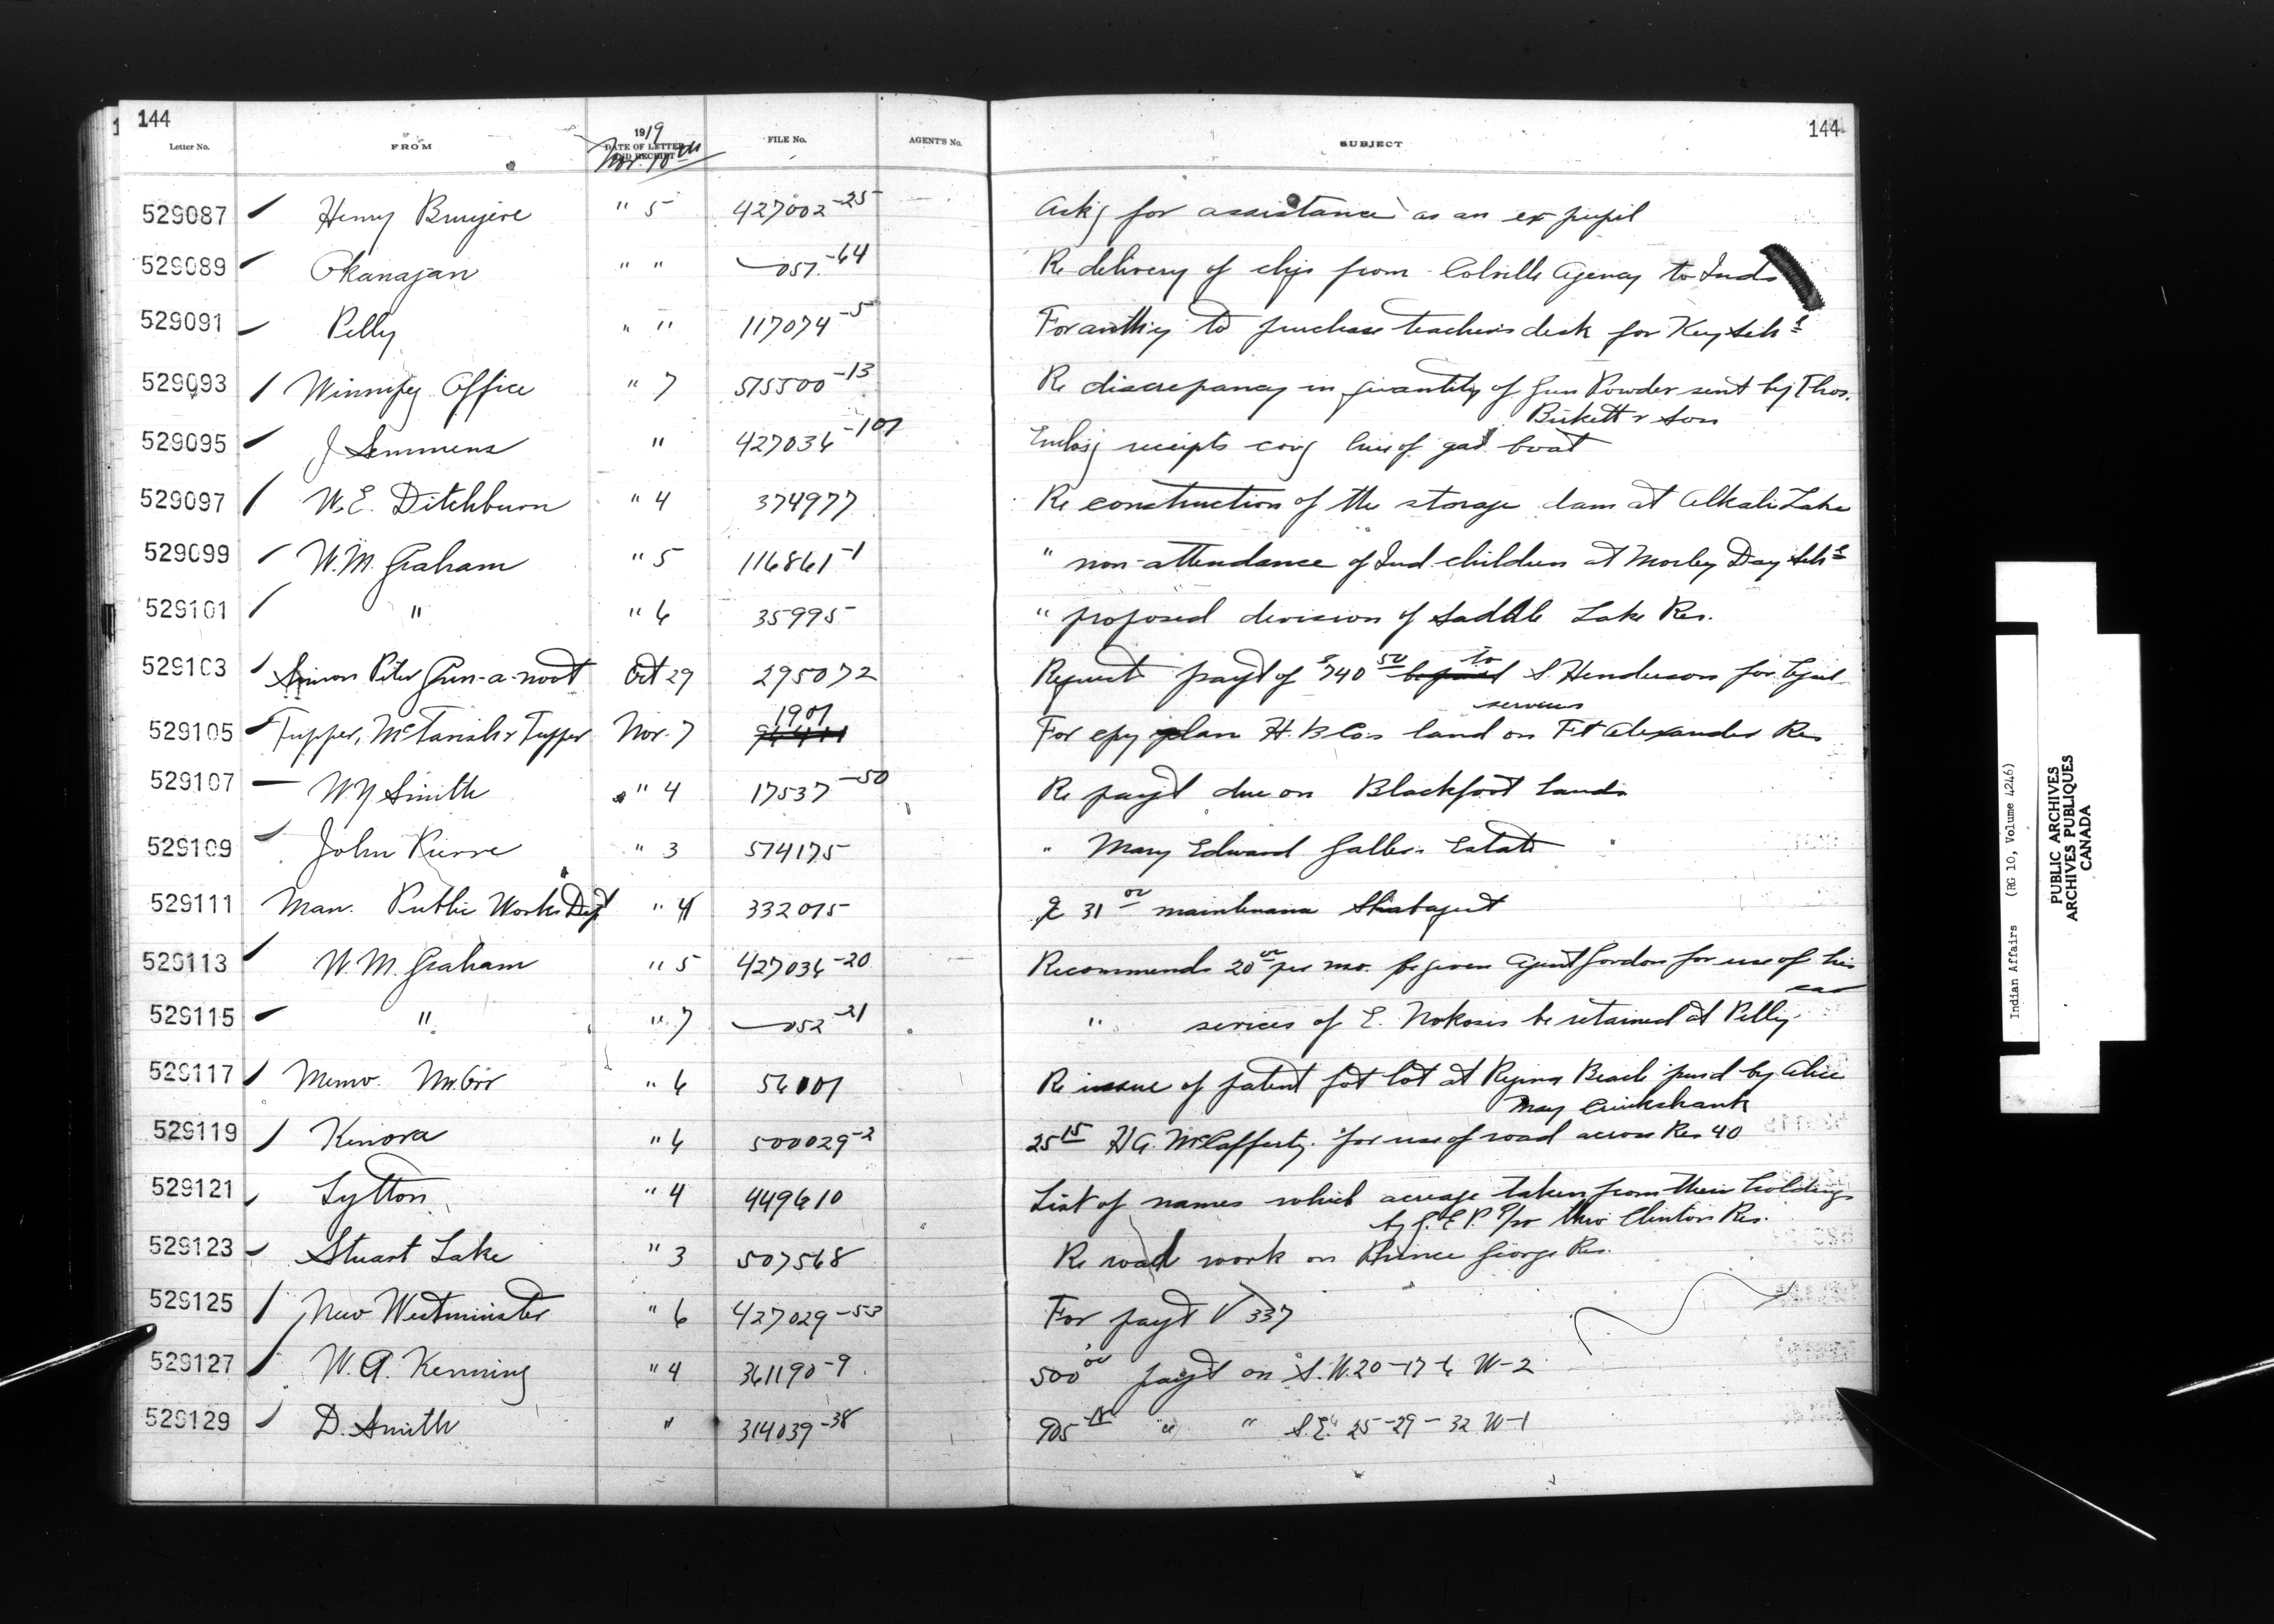 144
144
Letter No. FROM 1919 DATE OF LETTER AND RECEIPT FILE No. AGENT'S No. SUBJECT
Nov. 10th
529087 Henry Bruyere " 5 427002-25 Ask'g for assistance as an ex pupil
529089 Okanagan " " 057-64 Re delivery of clips from Colville Agency to Inds
529091 Pelly " " 117074-5 For authy to purchase teacher's desk for Key Schl
529093 Winnipeg Office " 7 515500-13 Re discrepancy in quantity of Gun Powder sent by Thos.
Birkett & Son
529095 J Semmens " 427036-101 Enclosg receipts covg hire of gas boat
529097 W.E. Ditchburn " 4 374977 Re construction of the storage dam at Alkali Lake
529099 W.M. Graham " 5 116861-1 " non-attendance of Ind. children at Morley Day Schl
529101 " " 6 35995 " proposed division of Saddle Lake Res.
529103 Simon Peter Gun-a-noot Oct 29 295072 Request payt of $740 50 to S. Henderson for legal
services
529105 Tupper, McTavish & Tupper Nov. 7 1901 For cpy plan H.B.Co's land on Ft Alexander Res
529107 W.Y Smith " 4 17537-50 Re payt due on Blackfoot lands
529109 John Pierre " 3 574175 " Mary Edward Estate
529111 Man. Public Works Dept " 4 332015 31 00 maintenance
529113 W.M. Graham " 5 427036-20 Recommends 20 00 per mo. be given Agent Gordon for use of his
car
529115 " " 7 052-21 " serices of E. Nokosis be retained at Pelly
529117 Memo. Mr. Orr " 6 56101 Re issue of patent fot lot at Regina Beach purd by Alice
May Cruikshank
529119 Kenora " 6 500029-2 25 15 H A. McCafferty for use of road across Res 40
529121 Lytton " 4 449610 List of names which acreage taken from their holdings
by G.E.P. thro' Clinton Res.
529123 Stuart Lake " 3 507568 Re road work on Prince George Res.
529125 New Westminster " 6 427029-53 For payt V 337
529127 W.A. Kenning " 4 361190-9 500 00 payt on S.W. 20-17-6 W-2
529129 D. Smith " 314039-38 905 " " S.E. 25-29-32 W-1
Indian Affairs (RG 10, Volume 4246)
PUBLIC ARCHIVES
ARCHIVES PUBLIQUES
CANADA